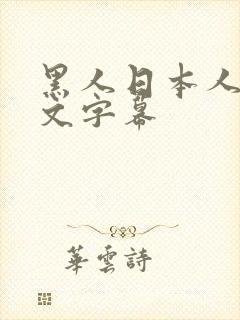 黑人日本人
文字幕
華雲詩